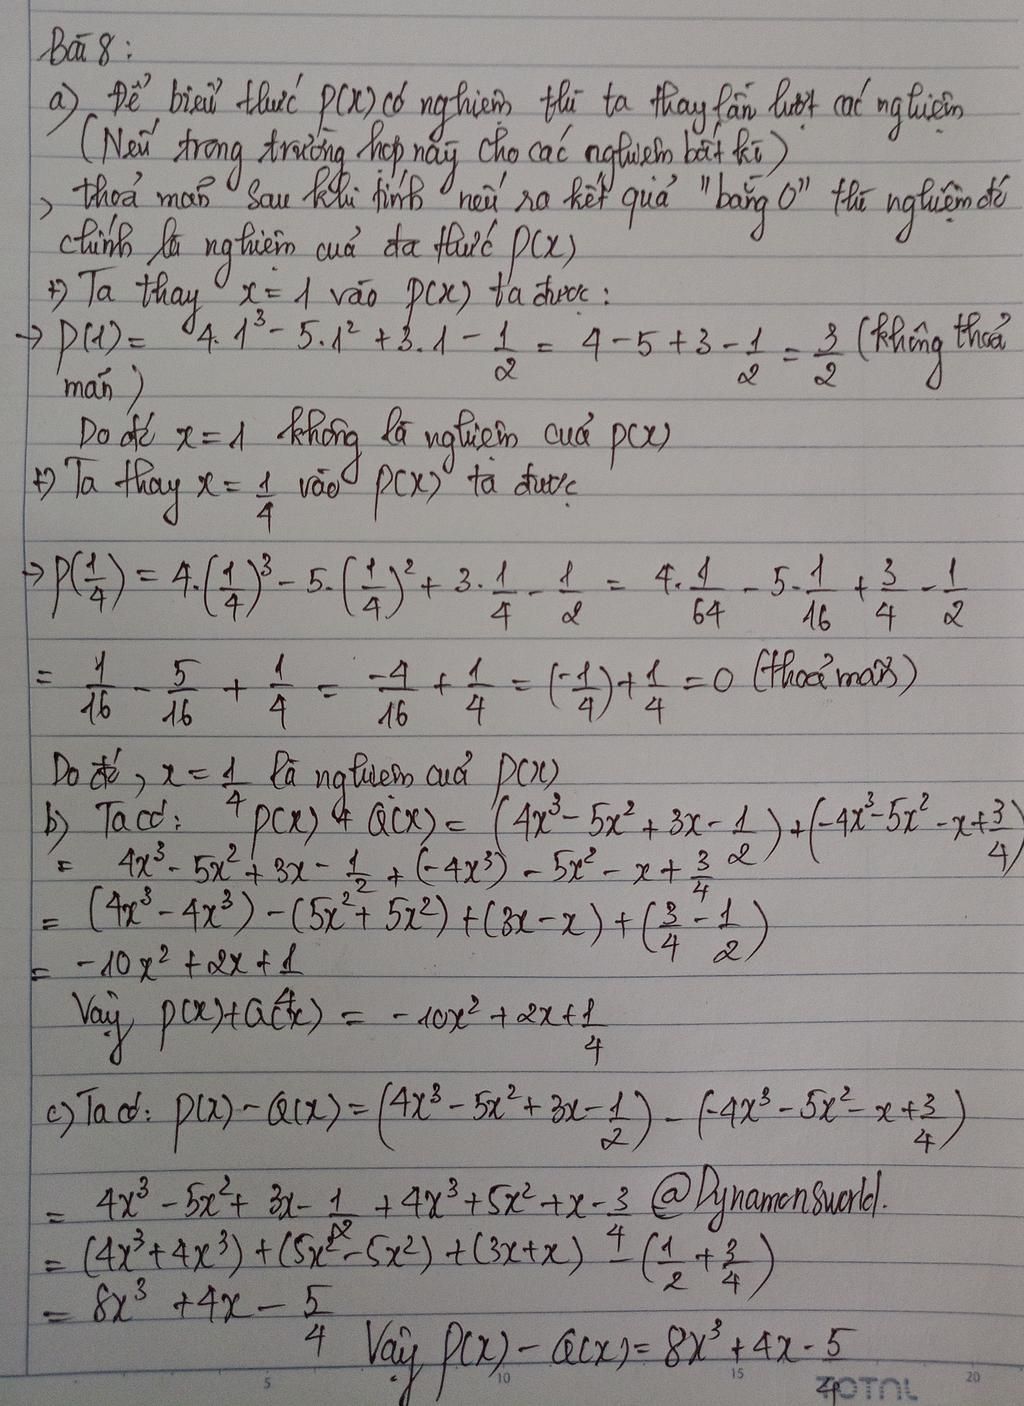 Bài 8:
a) Để biểu thức P(x) có nghiệm thì ta thay lần lượt các nghiệm
(Nếu trong trường hợp này cho các nghiệm bất kì)
, thoả mãn sau khi tính nếu ra kết quả "bằng 0" thì nghiệm đó
chính là nghiệm của đa thức P(x)
+) Ta thay x = 1 vào P(x) ta được:
→ P(1) = 4.1³ - 5.1² + 3.1 - 1/2 = 4 - 5 + 3 - 1/2 = 3/2 (không thoả
mãn)
Do đó x = 1 không là nghiệm của P(x)
+) Ta thay x = 1/4 vào P(x) ta được
→ P(1/4) = 4.(1/4)³ - 5.(1/4)² + 3.1/4 - 1/2 = 4.1/64 - 5.1/16 + 3/4 - 1/2
= 1/16 - 5/16 + 1/4 = -4/16 + 1/4 = (-1/4) + 1/4 = 0 (thoả mãn)
Do đó, x = 1/4 là nghiệm của P(x)
b) Ta có: P(x) + Q(x) = (4x³ - 5x² + 3x - 1/2) + (-4x³ - 5x² - x + 3/4)
= 4x³ - 5x² + 3x - 1/2 + (-4x³) - 5x² - x + 3/4
= (4x³ - 4x³) - (5x² + 5x²) + (3x - x) + (3/4 - 1/2)
= -10x² + 2x + 1/4
Vậy P(x) + Q(x) = -10x² + 2x + 1/4
c) Ta có: P(x) - Q(x) = (4x³ - 5x² + 3x - 1/2) - (-4x³ - 5x² - x + 3/4)
= 4x³ - 5x² + 3x - 1/2 + 4x³ + 5x² + x - 3/4 @Dynamonsworld.
= (4x³ + 4x³) + (5x² - 5x²) + (3x + x) - (1/2 + 3/4)
= 8x³ + 4x - 5/4
Vậy P(x) - Q(x) = 8x³ + 4x - 5/4
5 10 15 TOTAL 20